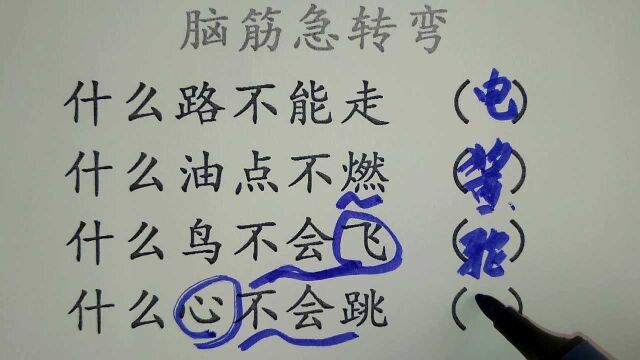 脑筋急转弯
什么路不能走 (电)
什么油点不燃 (酱)
什么鸟不会飞 (鸵)
什么心不会跳 ( )